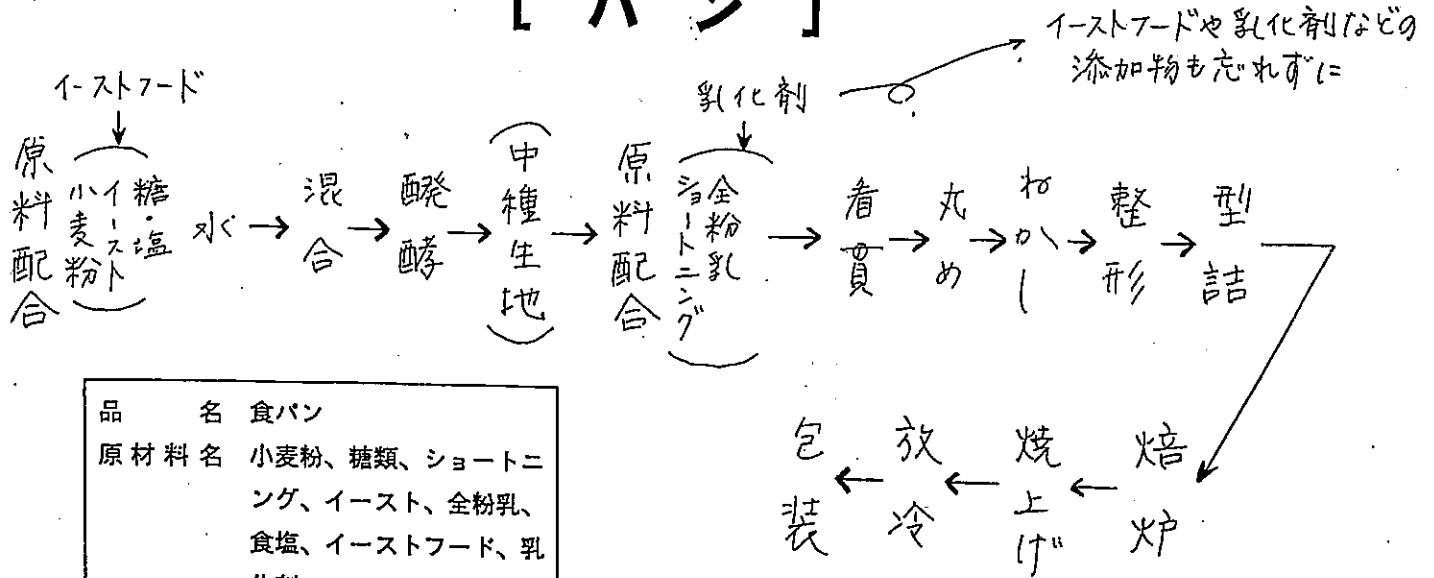 [ パン ]
イーストフードや乳化剤などの
添加物も忘れずに
イーストフード
乳化剤
原料配合
小麦粉
イースト
糖・塩
水
混合
醗酵
(中種生地)
原料配合
ショートニング
全粉乳
看貫
丸め
ねかし
整形
型詰
焙炉
焼上げ
放冷
包装
品 名 食パン
原材料名 小麦粉、糖類、ショートニ
ング、イースト、全粉乳、
食塩、イーストフード、乳